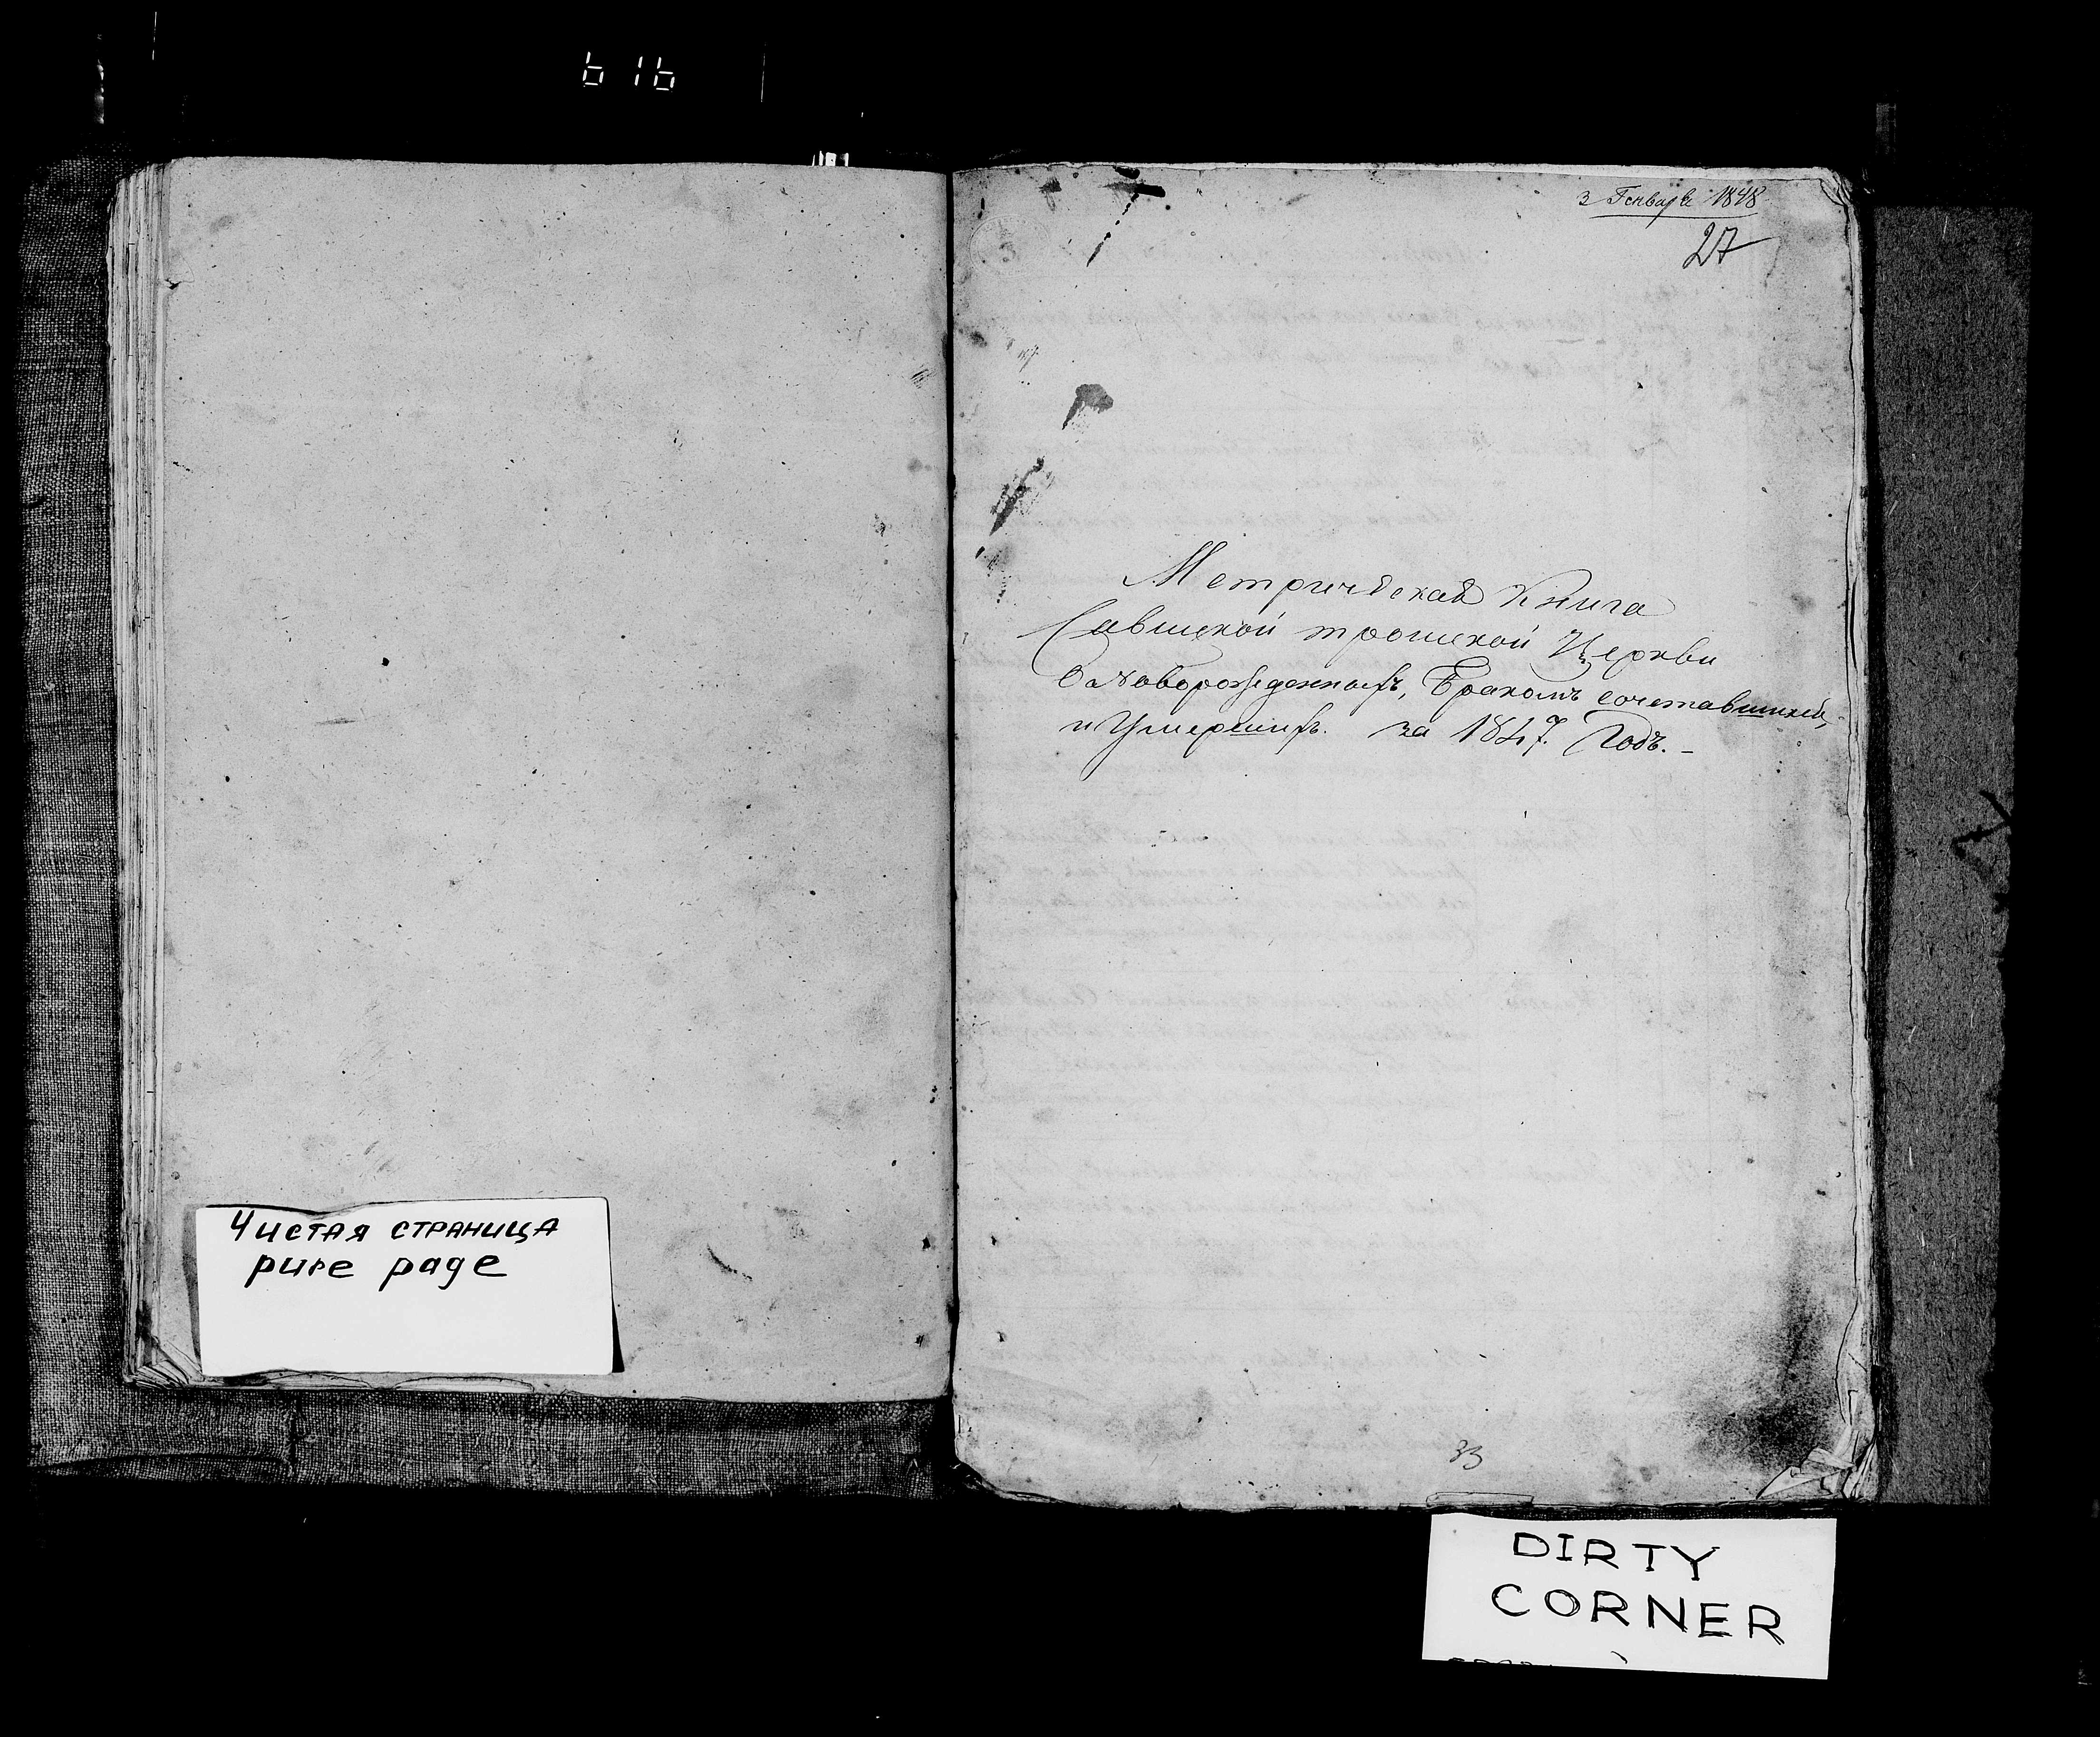 616
3 Генваря 1848
27
Метрическая Книга
Савинской троицкой Церкви
О Новорожденныхъ, Бракомъ сочетавшихся,
и Умершихъ. за 1847. Годъ. -
33
Чистая страница
pure page
DIRTY
CORNER